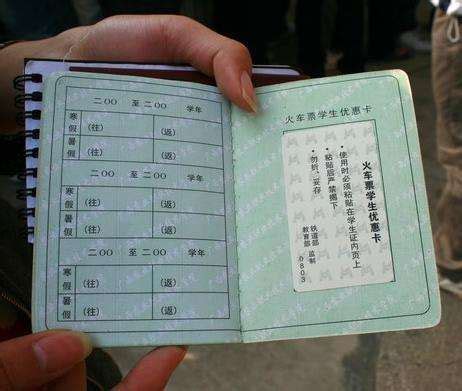 二OO 至 二OO 学年
寒假 (往) (返)
暑假 (往) (返)
二OO 至 二OO 学年
寒假 (往) (返)
暑假 (往) (返)
二OO 至 二OO 学年
寒假 (往) (返)
暑假 (往) (返)
火车票学生优惠卡
火车票学生优惠卡
·使用时必须粘贴在学生证内页上
·粘贴后严禁撕下
·勿折、妥存
铁道部
教育部
监制
0803